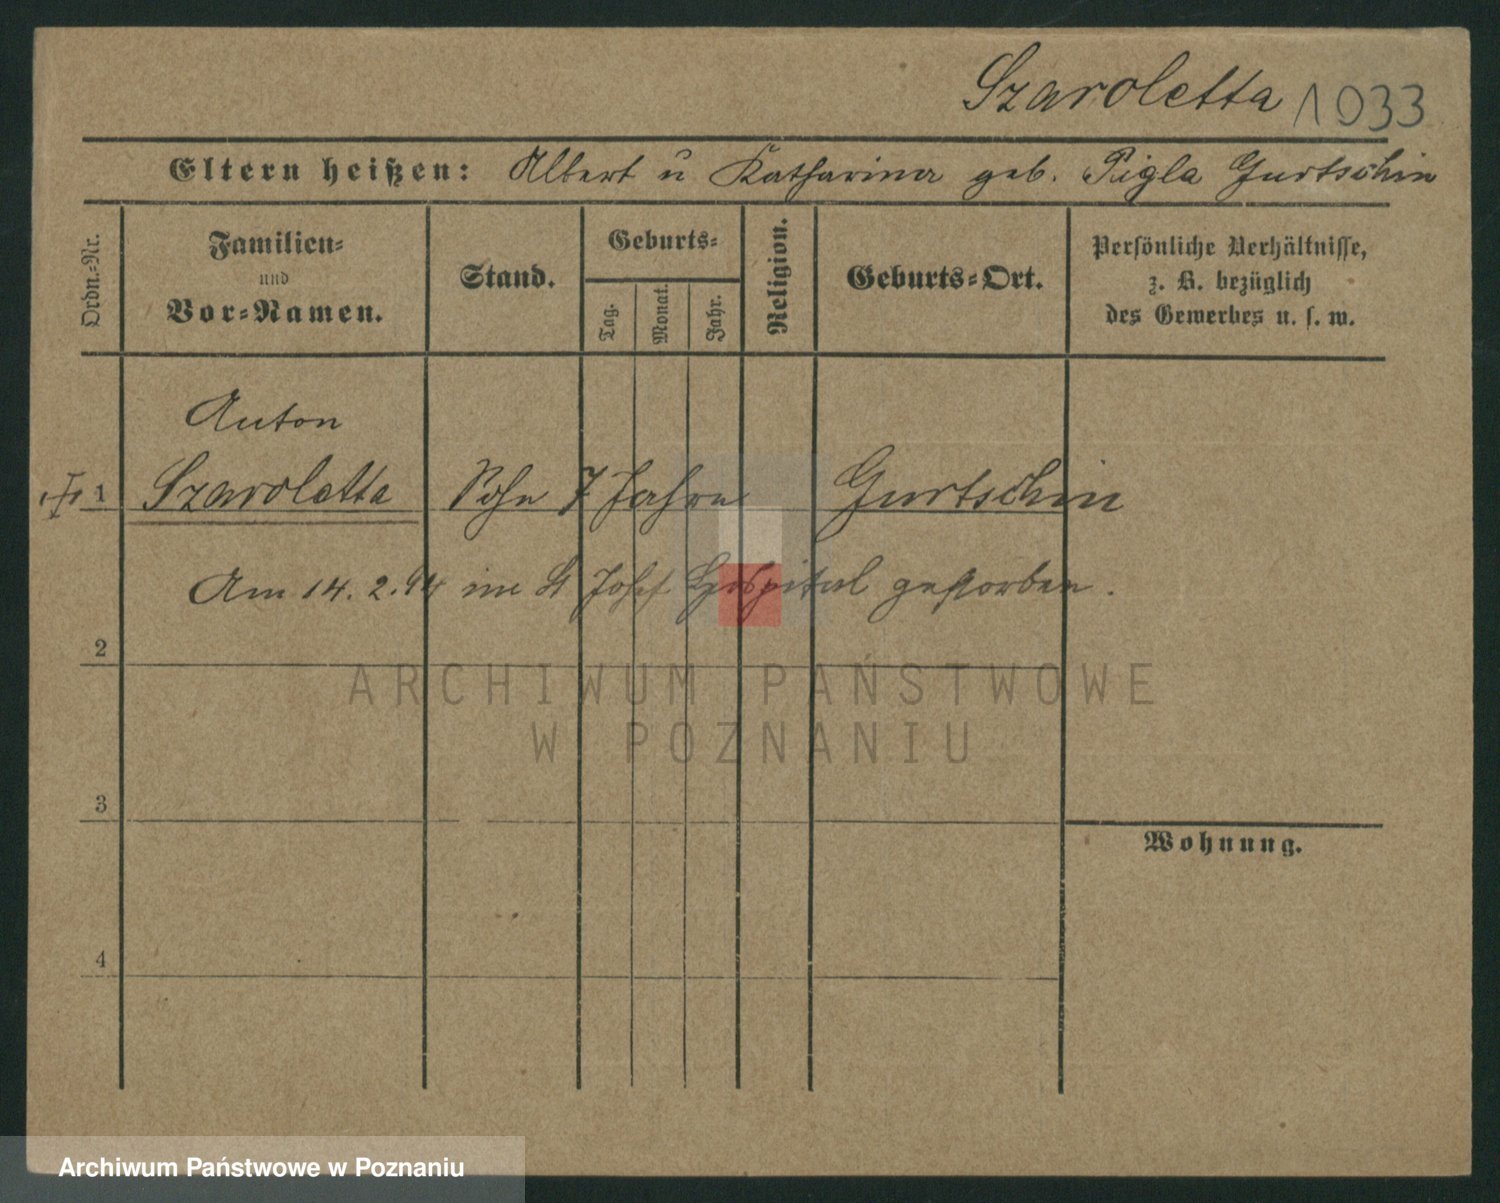 Szaroletta 1033
Eltern heißen: Albert u Katharina geb. Pigla Gurtschin
Ordn.-Nr.
Familien-
und
Vor-Namen.
Stand.
Geburts-
Tag.
Monat.
Jahr.
Religion.
Geburts-Ort.
Persönliche Verhältnisse,
z. B. bezüglich
des Gewerbes u. s. w.
Anton
1 Szaroletta Sohn 7 Jahre Gurtschin
Am 14. 2. 94 im St Josef Hospital gestorben.
2
ARCHIWUM PAŃSTWOWE
W POZNANIU
3
Wohnung.
4
Archiwum Państwowe w Poznaniu